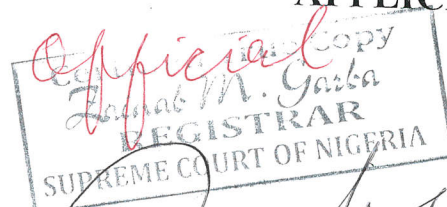 Official
Copy
Zainab M. Garba
REGISTRAR
SUPREME COURT OF NIGERIA